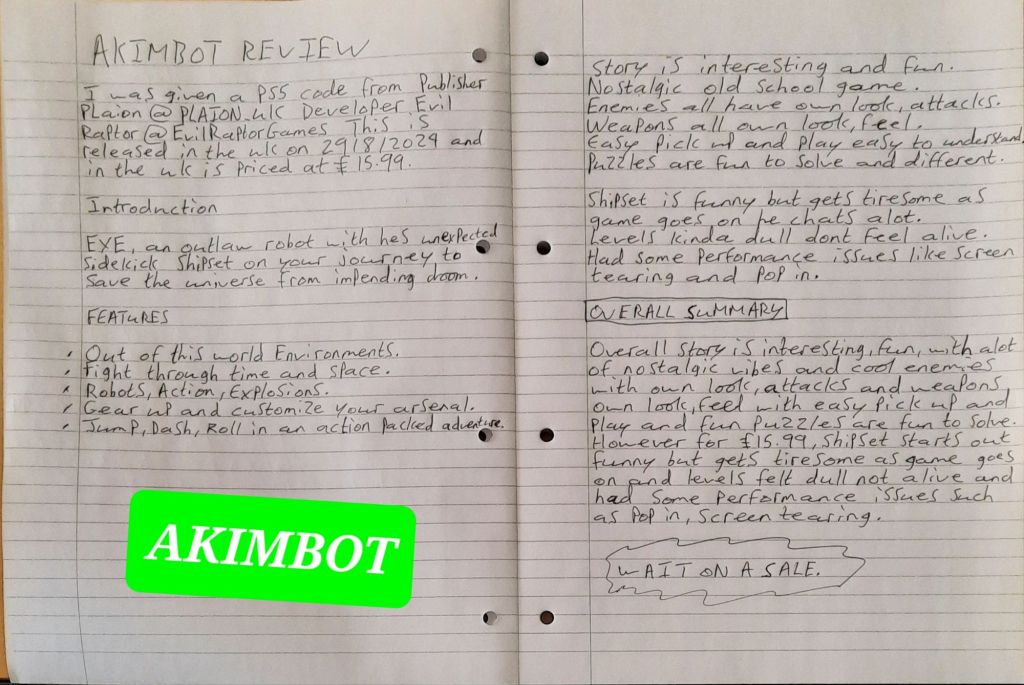 AKIMBOT REVIEW
I was given a PS5 code from Publisher
Plaion @ PLAION_uk Developer Evil
Raptor @ EvilRaptorGames This is
released in the uk on 29/8/2024 and
in the uk is priced at £15.99.
Introduction
EXE, an outlaw robot with hes unexpected
Sidekick Shipset on your journey to
Save the universe from impending doom.
FEATURES
Out of this world Environments.
Fight through time and space.
Robots, Action, Explosions.
Gear up and customize your arsenal.
Jump, Dash, Roll in an action packed adventure.
AKIMBOT
Story is interesting and fun.
Nostalgic old school game.
Enemies all have own look, attacks.
Weapons all own look, feel.
Easy pick up and play easy to understand.
Puzzles are fun to solve and different.
Shipset is funny but gets tiresome as
game goes on he chats alot.
Levels kinda dull dont feel alive.
Had some performance issues like screen
tearing and pop in.
OVERALL SUMMARY
Overall story is interesting, fun, with alot
of nostalgic vibes and cool enemies
with own look, attacks and weapons,
own look, feel with easy pick up and
play and fun puzzles are fun to solve.
However for £15.99, Shipset starts out
funny but gets tiresome as game goes
on and levels felt dull not alive and
had some performance issues such
as pop in, screen tearing.
WAIT ON A SALE.